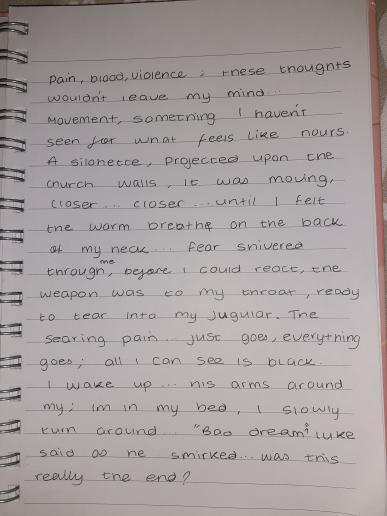 Pain, blood, violence ; these thoughts
wouldn't leave my mind...
Movement, something I haven't
seen for what feels like hours.
A silohette, projected upon the
church walls, it was moving,
closer... closer... until I felt
the warm breathe on the back
of my neck... fear shivered
through me, before I could react, the
weapon was to my throat, ready
to tear into my jugular. The
searing pain... just goes, everything
goes; all I can see is black.
I wake up... his arms around
my; im in my bed, I slowly
turn around... "Bad dream?" Luke
said as he smirked... was this
really the end?